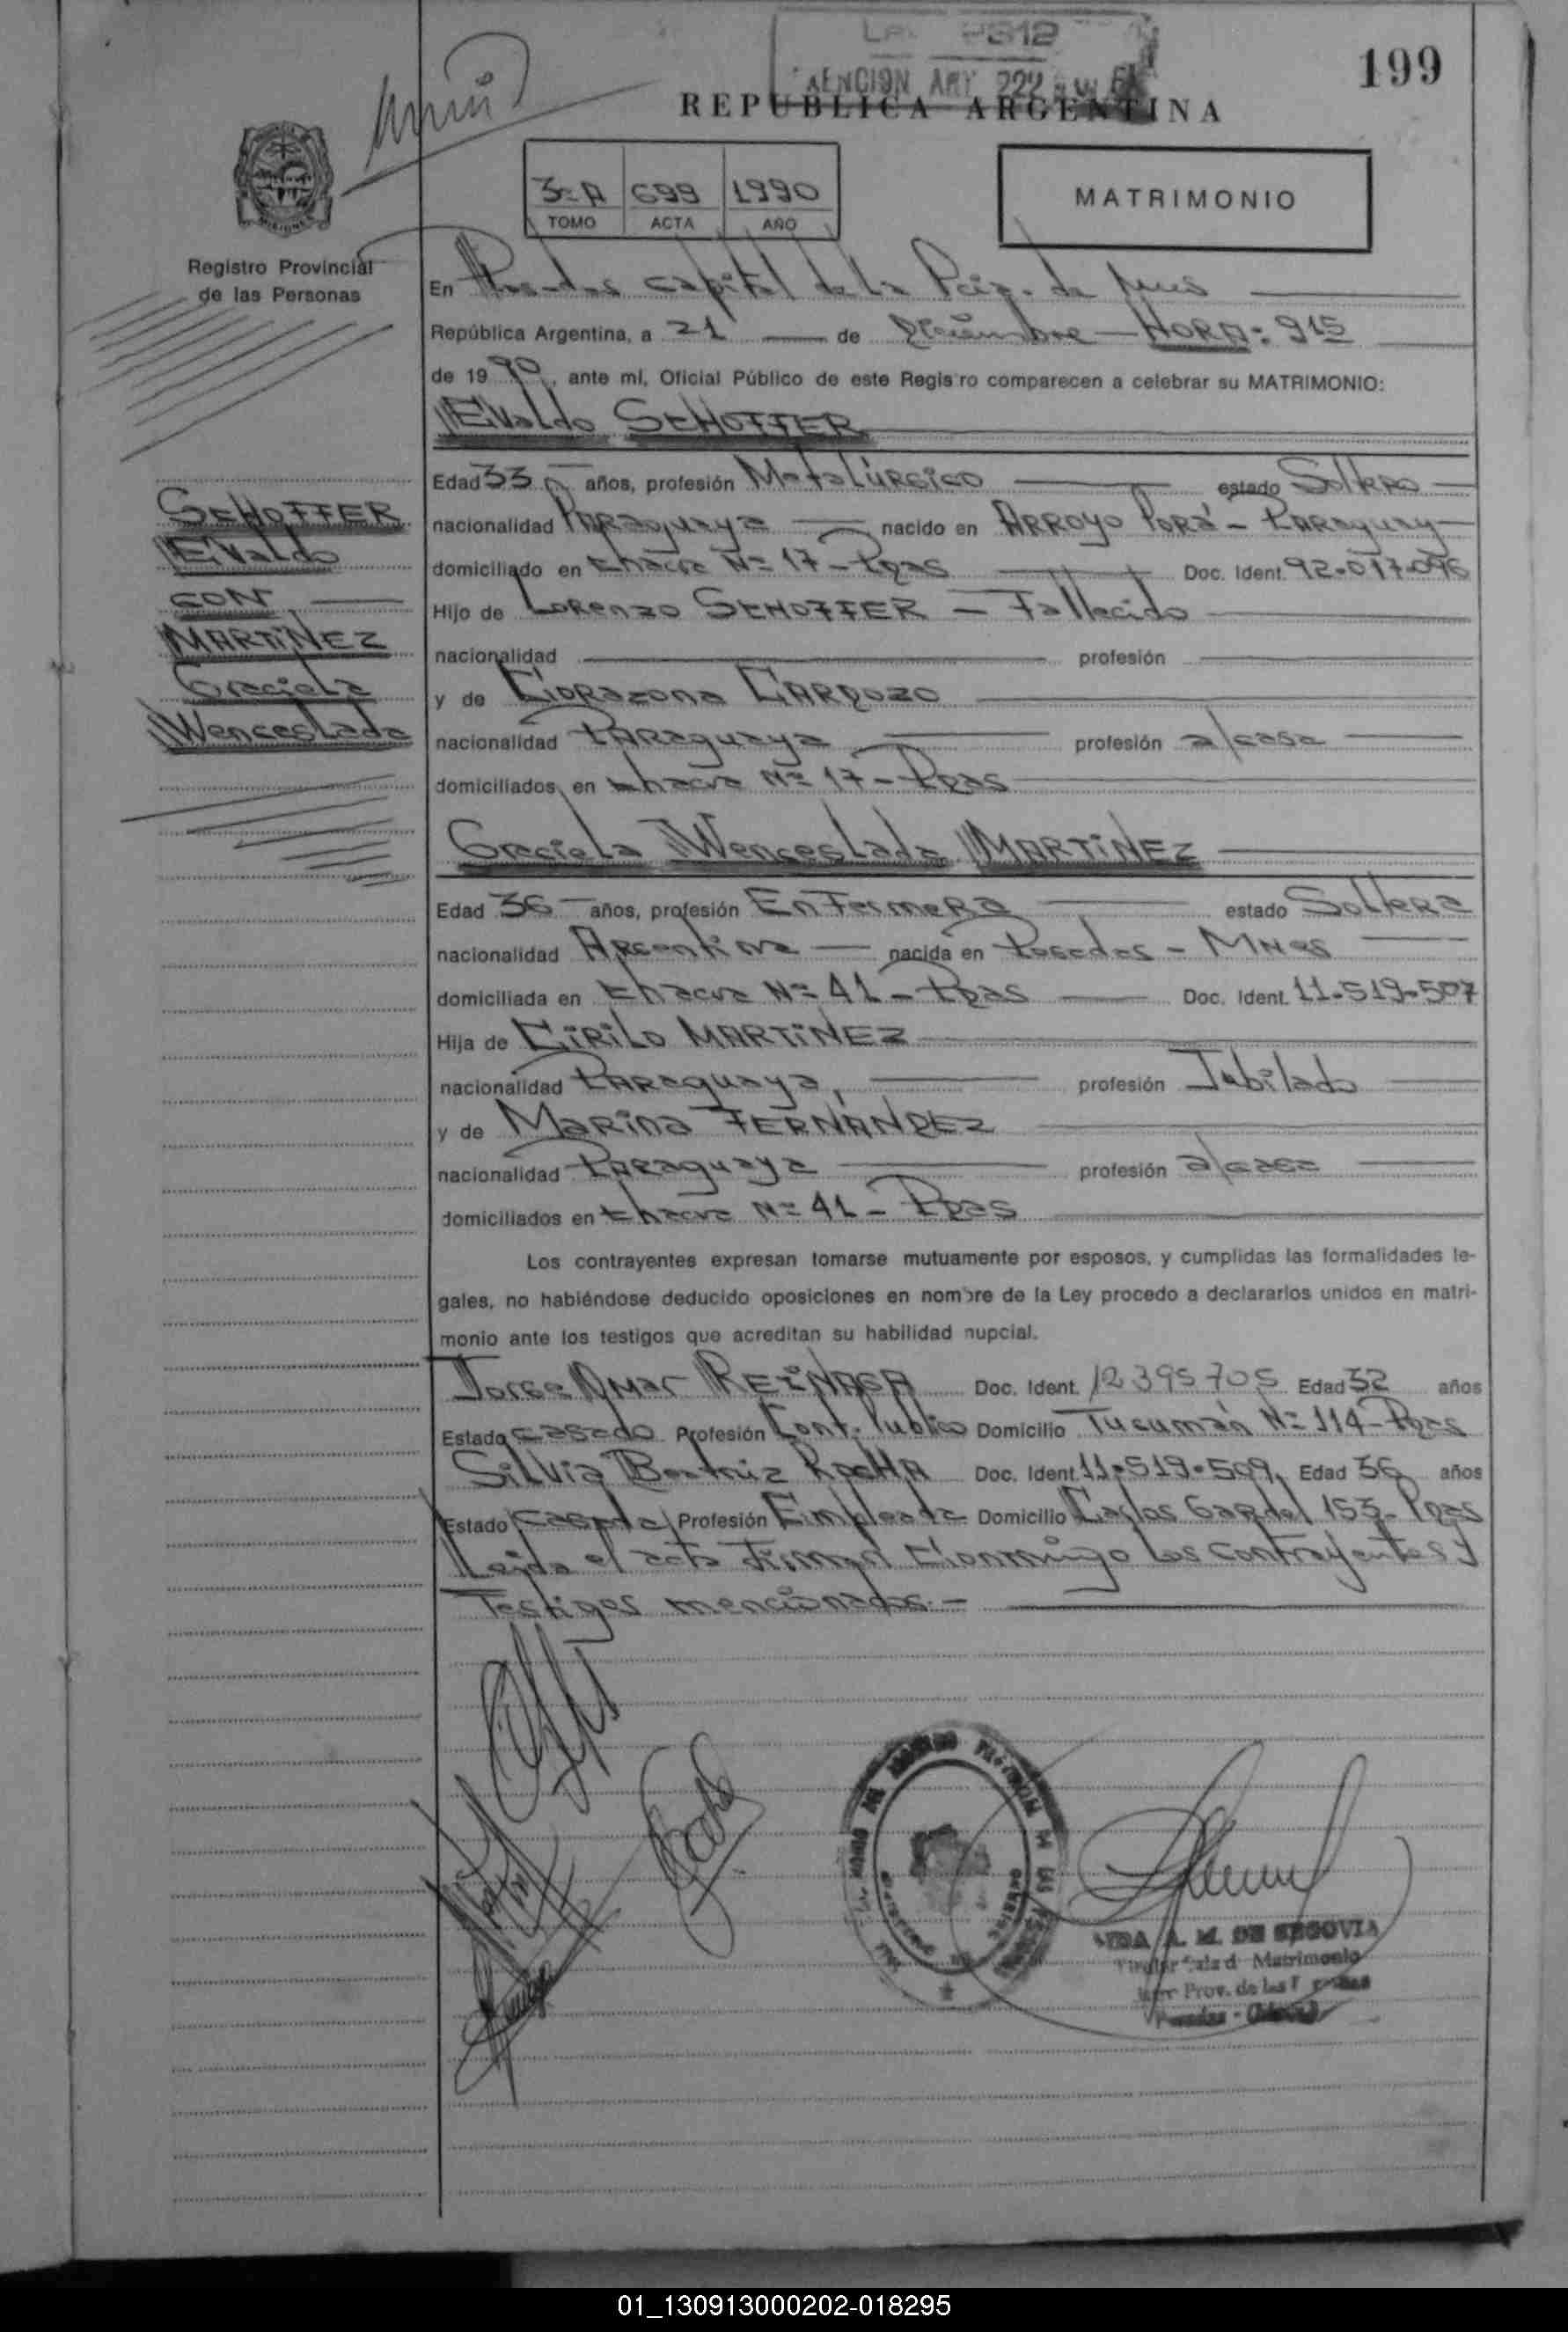 199
REPUBLICA ARGENTINA
3=A 699 1990
TOMO ACTA AÑO
MATRIMONIO
Registro Provincial
de las Personas
En Posadas capital de la Pcia. de Mnes
República Argentina, a 21 de Diciembre - HORA: 9 15
de 1990, ante mí, Oficial Público de este Registro comparecen a celebrar su MATRIMONIO:
Evaldo SCHOFFER
Edad 33 años, profesión Metalúrgico estado Soltero
nacionalidad Paraguaya nacido en Arroyo Porá - Paraguay
domiciliado en Chacra Nº 17 - Pdas Doc. Ident. 92.017.096
Hijo de Lorenzo SCHOFFER - Fallecido
nacionalidad profesión
y de Corazona CARDOZO
nacionalidad Paraguaya profesión a/casa
domiciliados en Chacra Nº 17 - Pdas
SCHOFFER
Evaldo
CON
MARTINEZ
Graciela
Wenceslada
Graciela Wenceslada MARTINEZ
Edad 36 años, profesión Enfermera estado Soltera
nacionalidad Argentina nacida en Posadas - Mnes
domiciliada en Chacra Nº 41 - Pdas Doc. Ident. 11.519.507
Hija de Cirilo MARTINEZ
nacionalidad Paraguaya, profesión Jubilado
y de Marina FERNÁNDEZ
nacionalidad Paraguaya profesión a/casa
domiciliados en Chacra Nº 41 - Pdas
Los contrayentes expresan tomarse mutuamente por esposos, y cumplidas las formalidades le-
gales, no habiéndose deducido oposiciones en nombre de la Ley procedo a declararlos unidos en matri-
monio ante los testigos que acreditan su habilidad nupcial.
Jorge Omar Doc. Ident. 12395705 Edad 32 años
Estado Casado Profesión Cont. Publico Domicilio Tucumán Nº 114 - Pdas
Silvia Beatriz ROCHA Doc. Ident. 11.519.509, Edad 36 años
Estado Casada Profesión Empleada Domicilio Carlos Gardel 153 - Pdas
Leída el acta firman conmigo los contrayentes y
Testigos mencionados.-
A. M. DE SEGOVIA
Matrimonio
Prov. de las
01_130913000202-018295